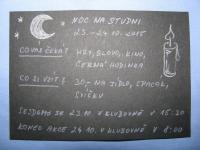 NOC NA STUDNI
23. - 24.10. 2015
CO VÁS ČEKÁ? HRY, SLOVO, KINO,
ČERNÁ HODINKA
CO SI VZÍT? 30,- NA JÍDLO, SPACÁK,
SVÍČKU
SEJDEME SE 23.10 V KLUBOVNĚ V 15:30
KONEC AKCE 24.10. V KLUBOVNĚ V 8:00